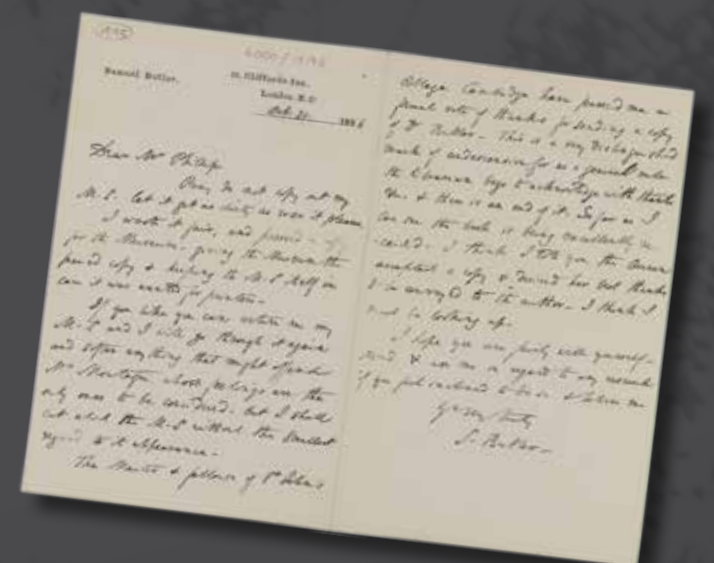 Samuel Butler.
15, Cliffords Inn,
London. E.C
Oct. 21 1896
Dear Mr Philip
Pray do not copy out my
M.S. let it get as dirty as ever it please
I wrote it fair, and pressed a copy
for the Museum. giving the Museum the
pressed copy & keeping the M-S itself in
case it was wanted for printers.
If you like you can return me my
M.S and I will go through it again
and soften anything that might offend
Mr whose feelings are the
only ones to be considered. but I shall
the M.S without the smallest
regard to its appearance.
The Master & fellows of St John's
College Cambridge have passed me a
vote of thanks for sending a copy
of Dr Butler. This is a very distinguished
mark of for as a general rule
the librarian begs to acknowledge with thanks
&c. & there is an end of it. So far as I
can see the book is being excellently re
-ceived. I think I told you the Queen
accepted a copy & desired her best thanks
to be conveyed to the author. I think I
must be looking up.
I hope you are
&
if you
Yours very truly
S. Butler